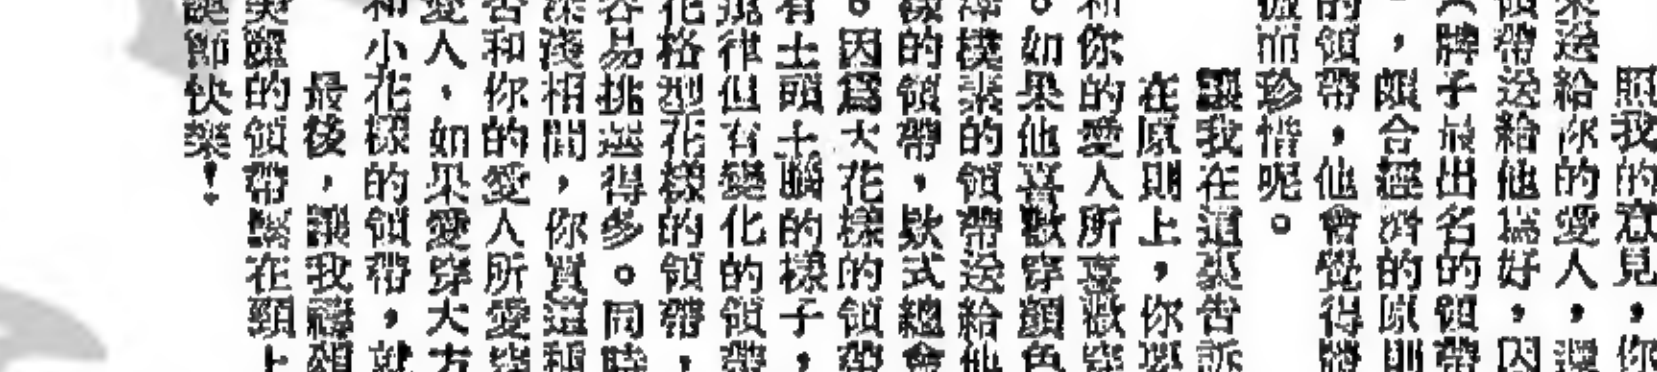 照我的意見，你
來送給你的愛人，還
領帶送給他為好，因
牌子最出名的領帶
，頗合經濟的原則
的領帶，他會覺得
而珍惜呢。
讓我在這裏告訴
在原則上，你要
和你的愛人所喜歡穿
。如果他喜歡穿顏色
樸素的領帶送給他
樣的領帶，欵式總會
。因爲大花樣的領帶
有土頭土腦的樣子，
規律但有變化的領帶
花格型花樣的領帶，
容易挑選得多。同時
深淺相間，你買這種
否和你的愛人所愛穿
愛人，如果愛穿大方
和小花樣的領帶，就
最後，讓我
美麗的領帶繫在頸上
誕節快樂！